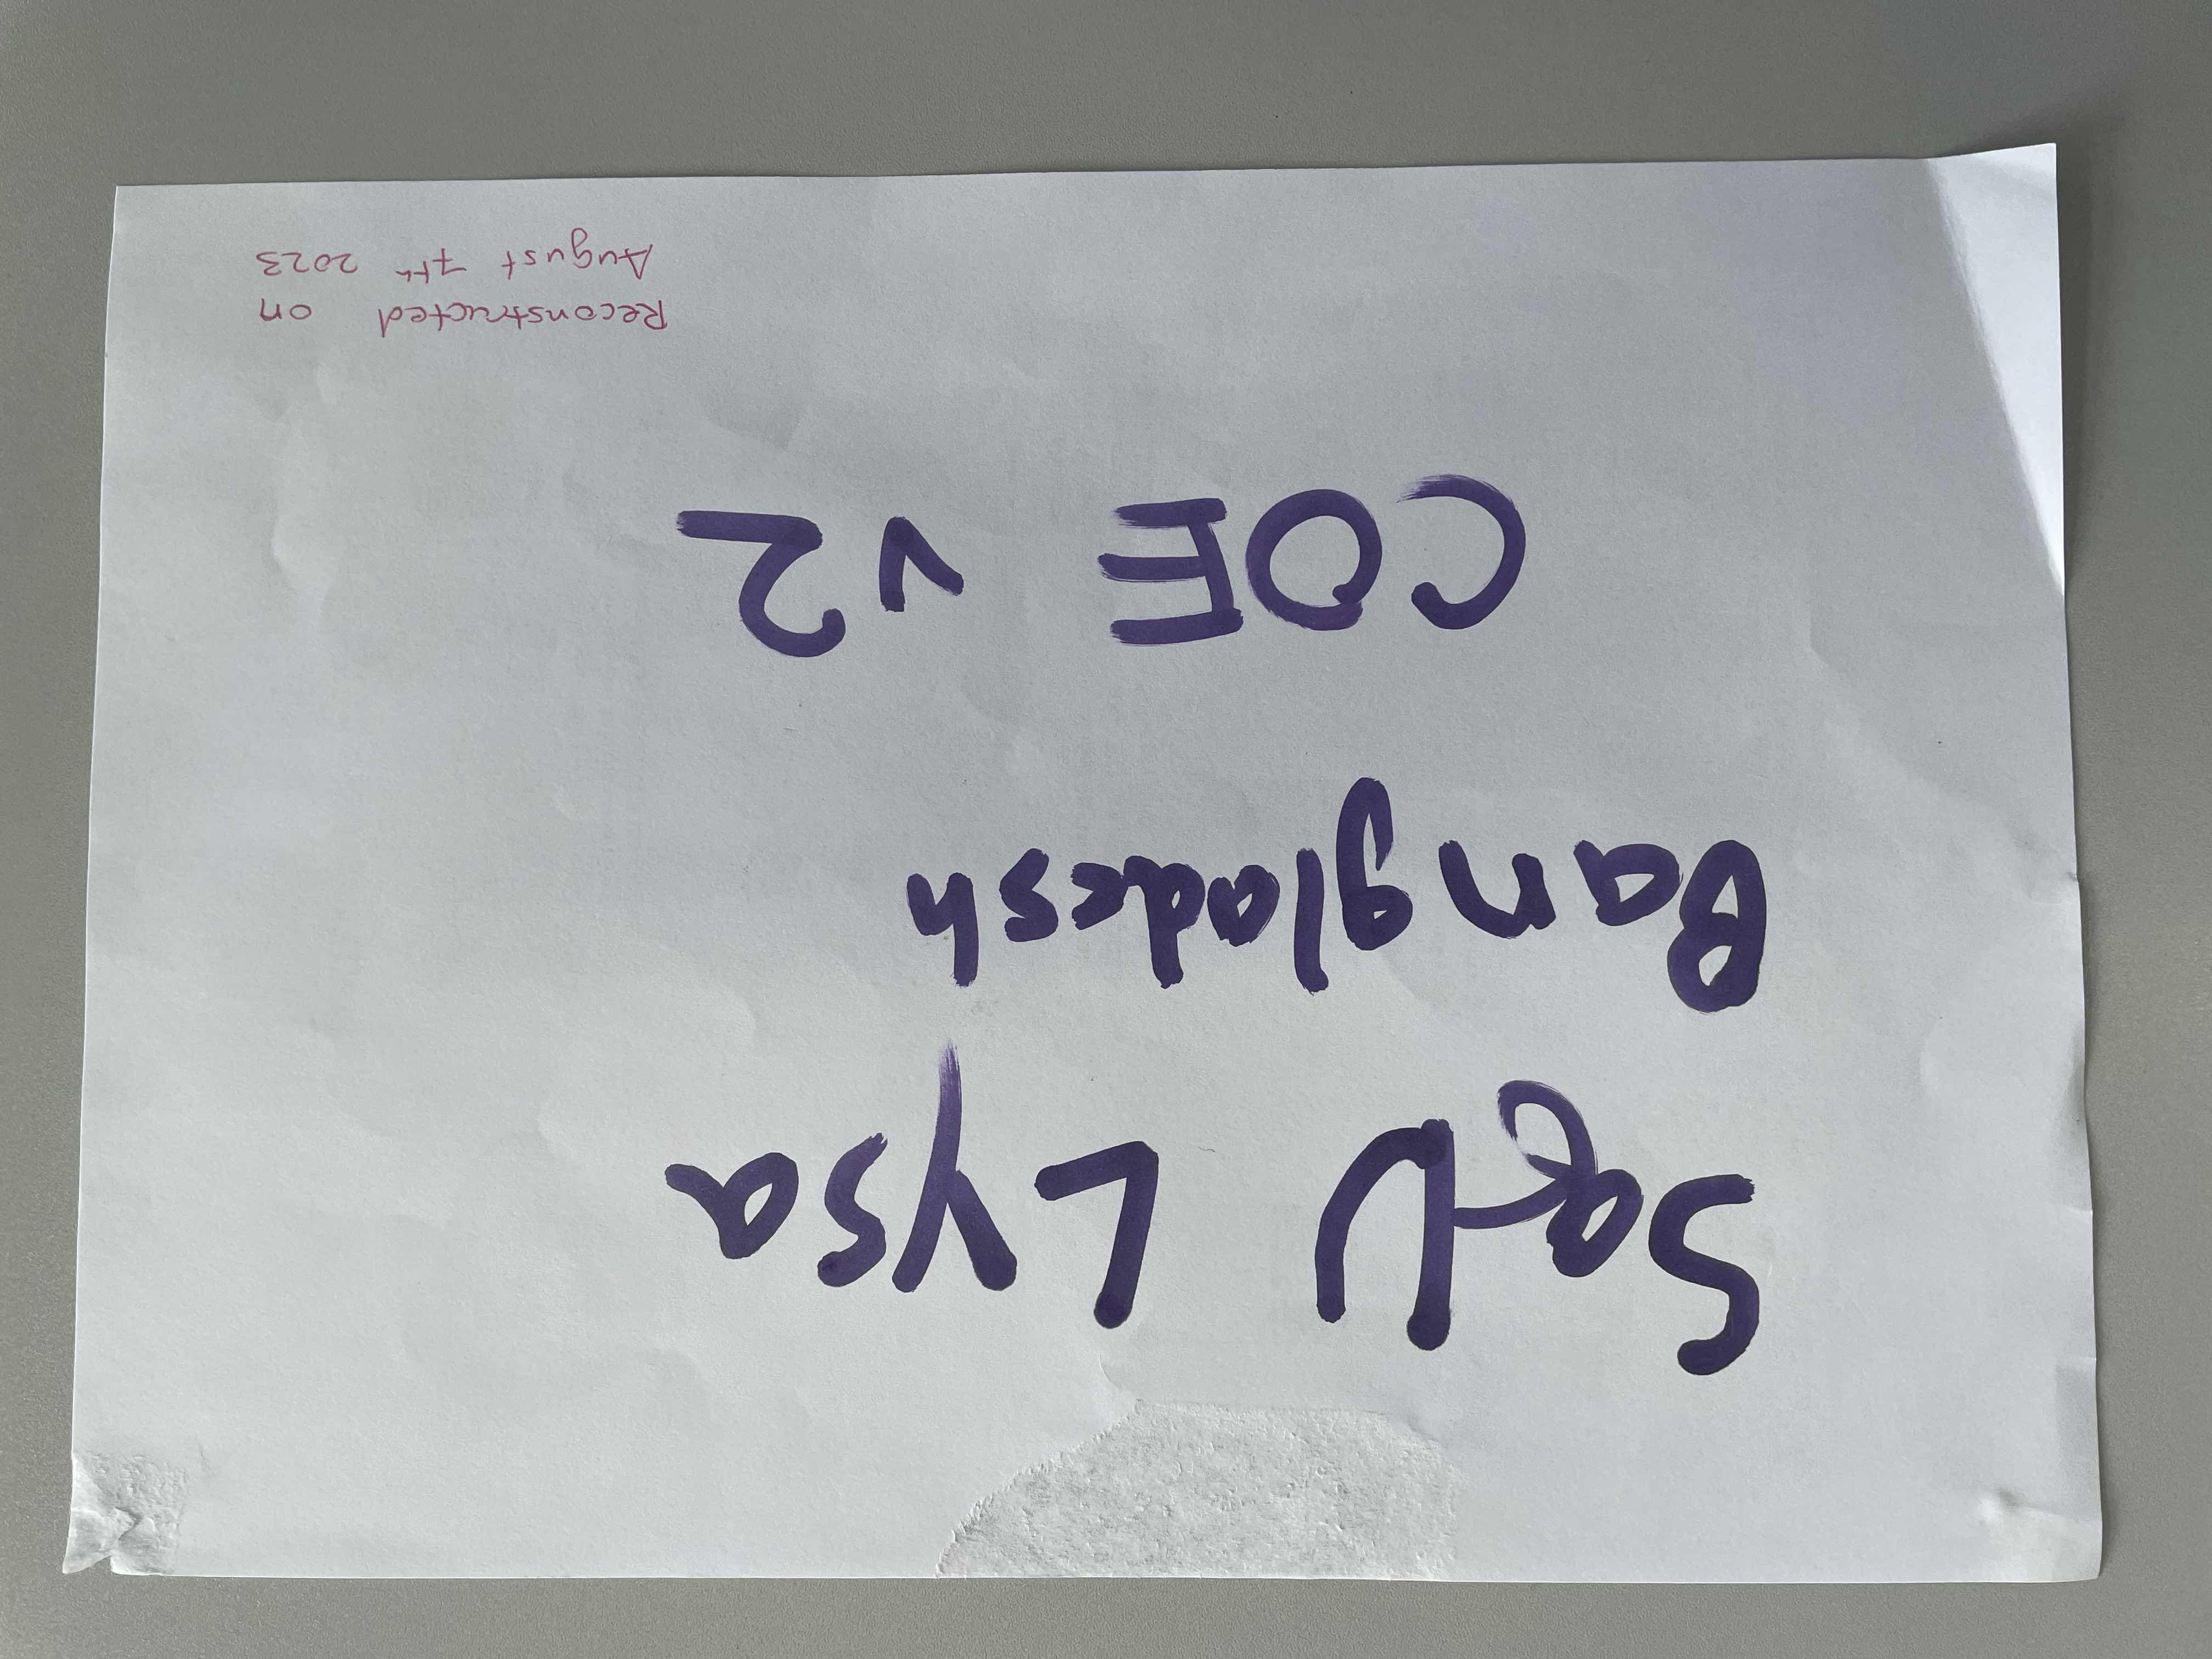 SqU Lysa
Bangladesh
COE v2
Reconstructed on
August 7th 2023